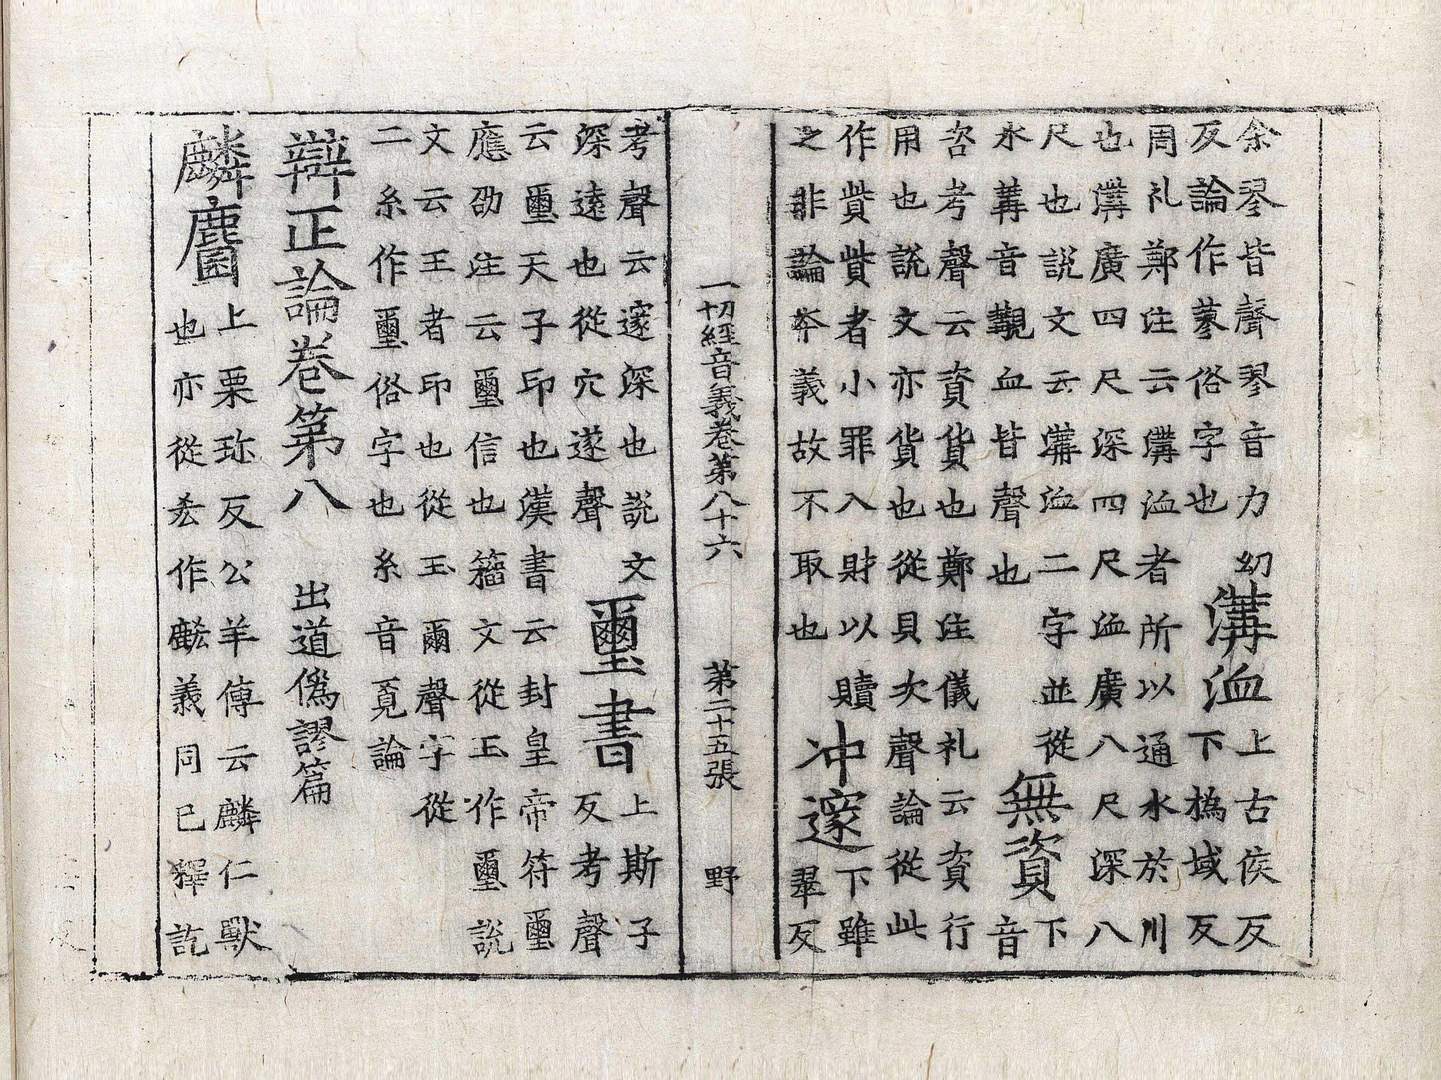 余翏皆聲翏音力幼
反論作蓼俗字也
溝洫
上古侯反
下撝域反
周礼鄭注云溝洫者所以通水於川
也溝廣四尺深四尺洫廣八尺深八
尺也說文云溝洫二字並從
水冓音覯血皆聲也
無資
下
音
咨考聲云資貨也鄭注儀礼云資行
用也說文亦貨也從貝次聲論從此
作貲貲者小罪入財以贖
之非論夲義故不取也
冲邃
下雖
翠反
一切經音義卷第八十六 第二十五張 野
考聲云邃深也說文
深遠也從穴遂聲
璽書
上斯子
反考聲
云璽天子印也漢書云封皇帝符璽
應劭注云璽信也籀文從玉作璽說
文云王者印也從玉爾聲字從
二糸作璽俗字也糸音覓論
辯正論卷第八 出道僞謬篇
麟麕
上栗珎反公羊傳云麟仁獸
也亦從作義同已釋訖